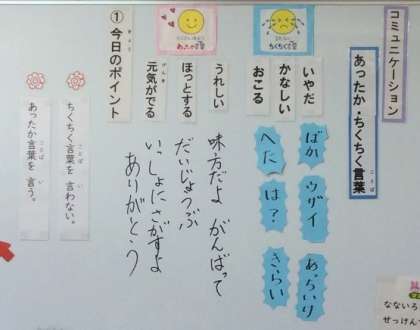 コミュニケーション
あったか・ちくちく言葉
ことば
ちくちく言葉
いやだ
かなしい
おこる
ばか
ウザイ
あっちいけ
へた
は?
きらい
あったか言葉
うれしい
ほっとする
元気がでる
げんき
味方だよ
がんばって
だいじょうぶ
いっしょにさがすよ
ありがとう
①今日のポイント
きょう
ちくちく言葉を言わない。
ことば
い
あったか言葉を言う。
ことば
い
なないろ
せっけん